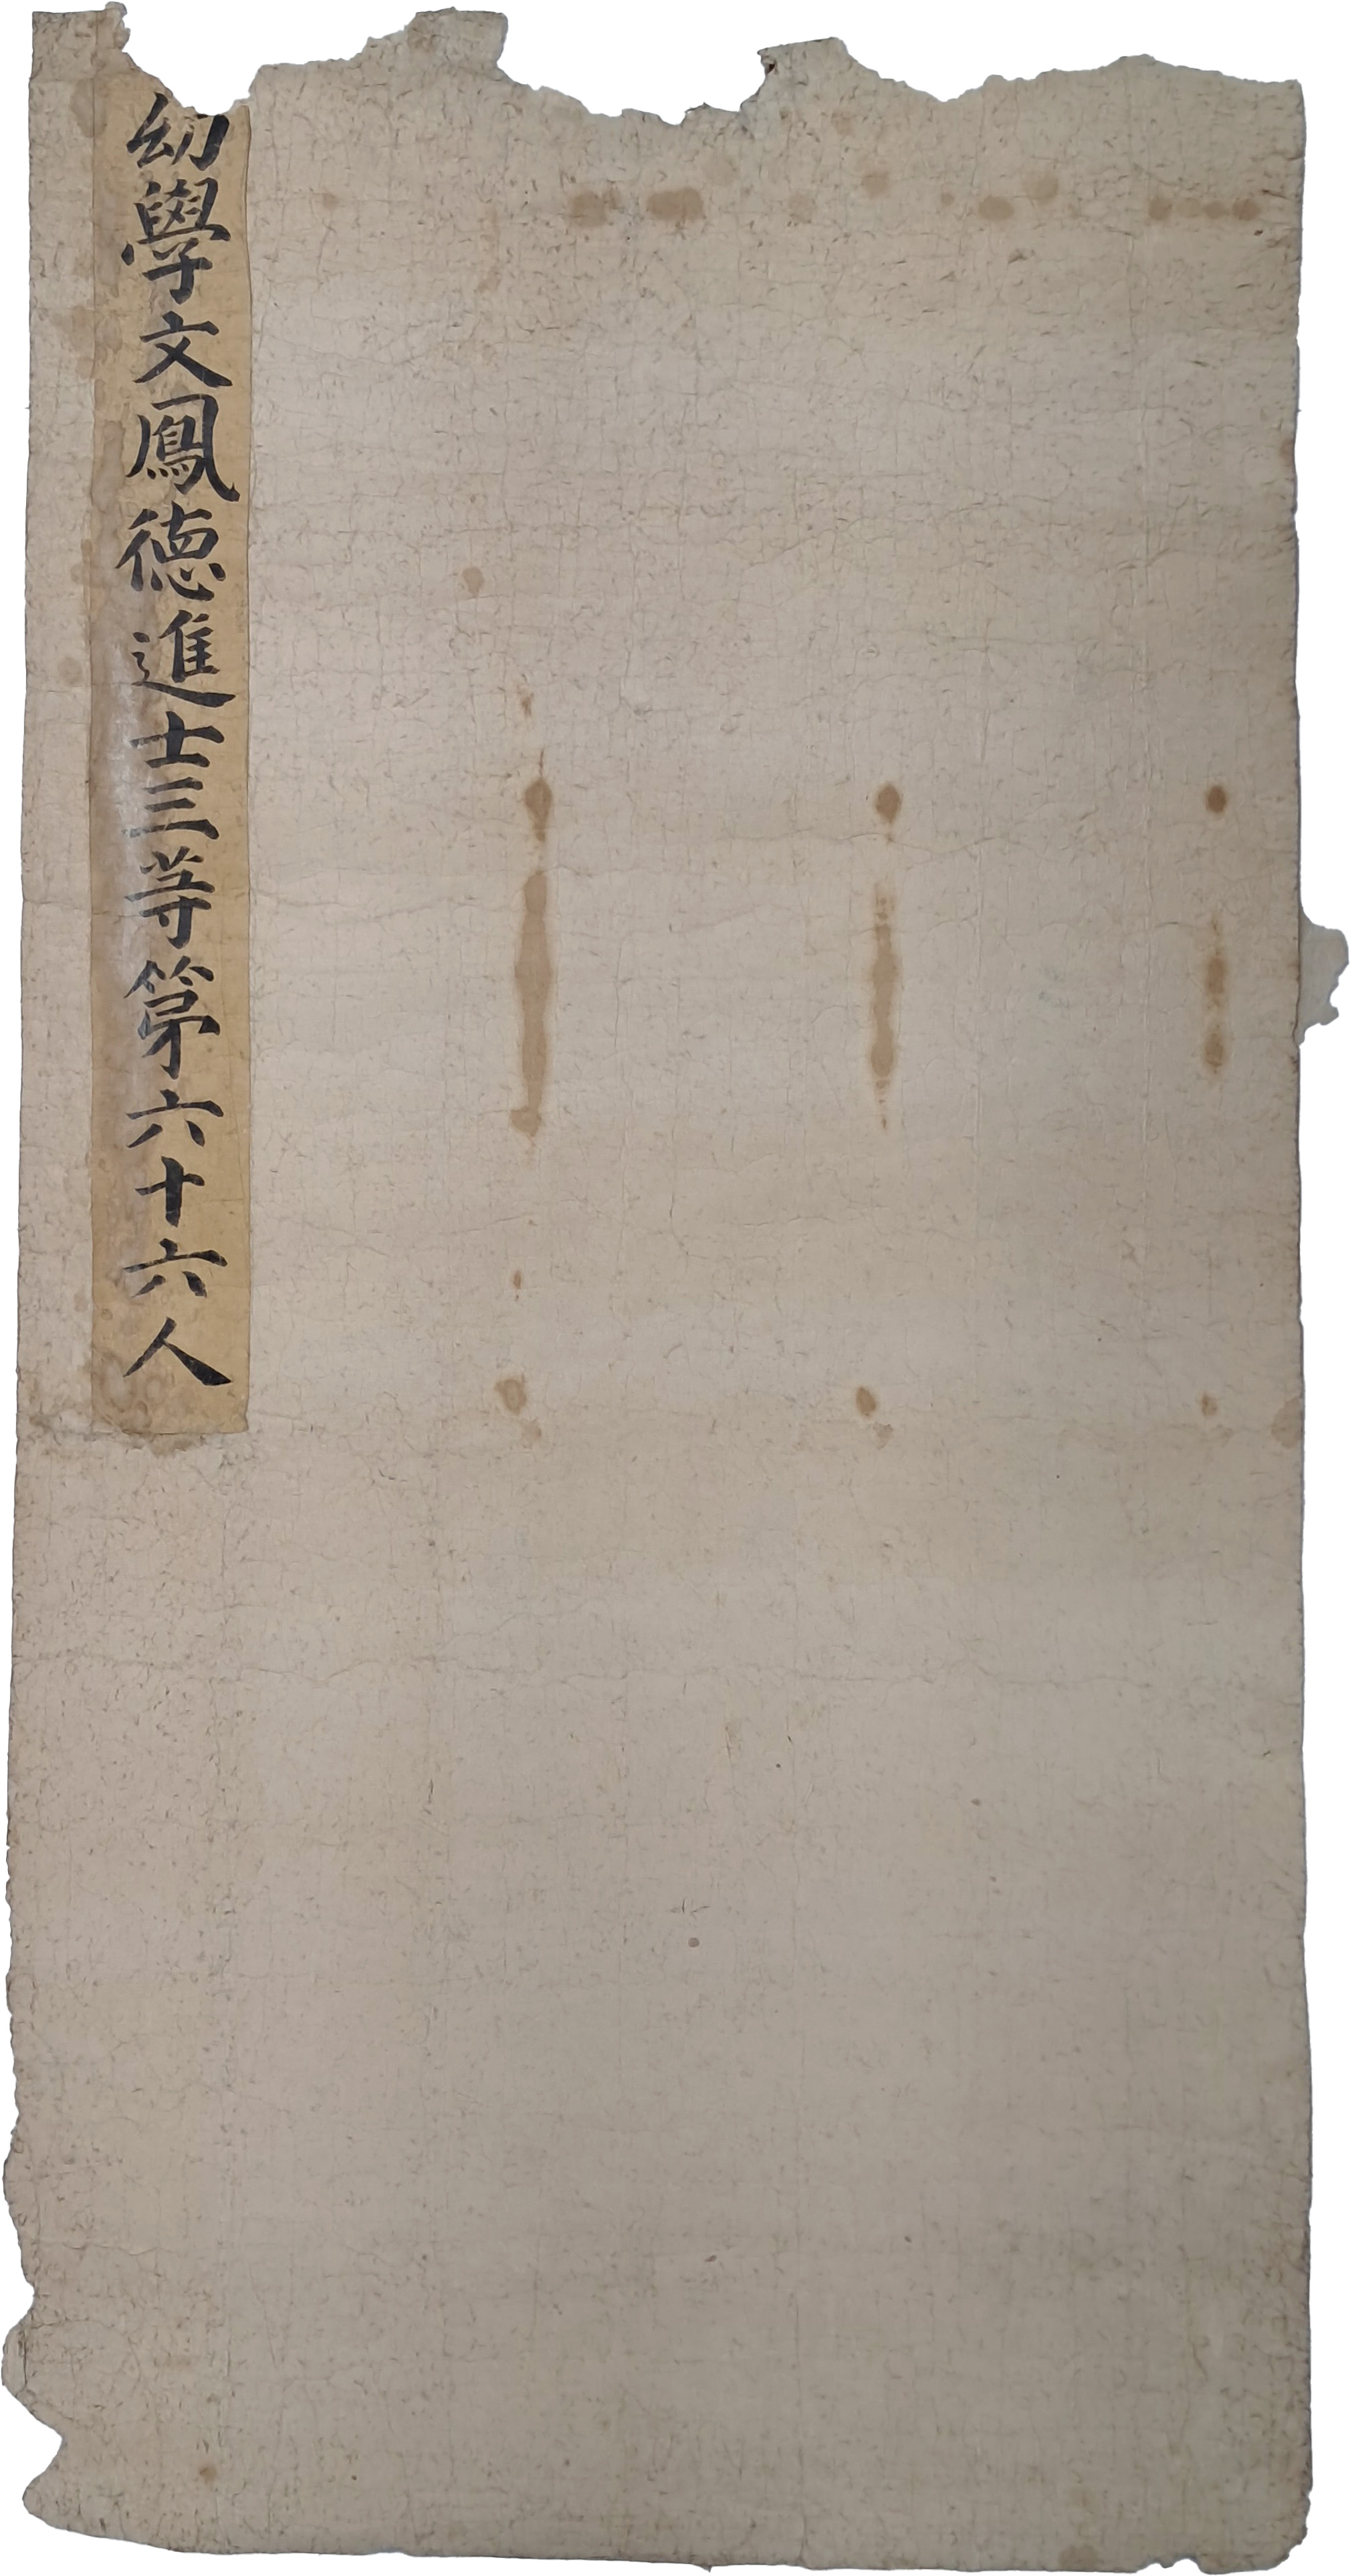 幼學文鳳德進士三等第六十六人